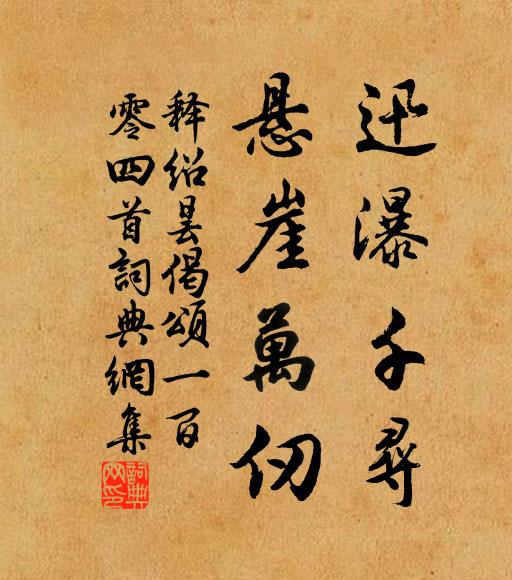 迅瀑千尋
悬崖萬仞
释绍昙偈頌一百
零四首詞典網集
詞典网印